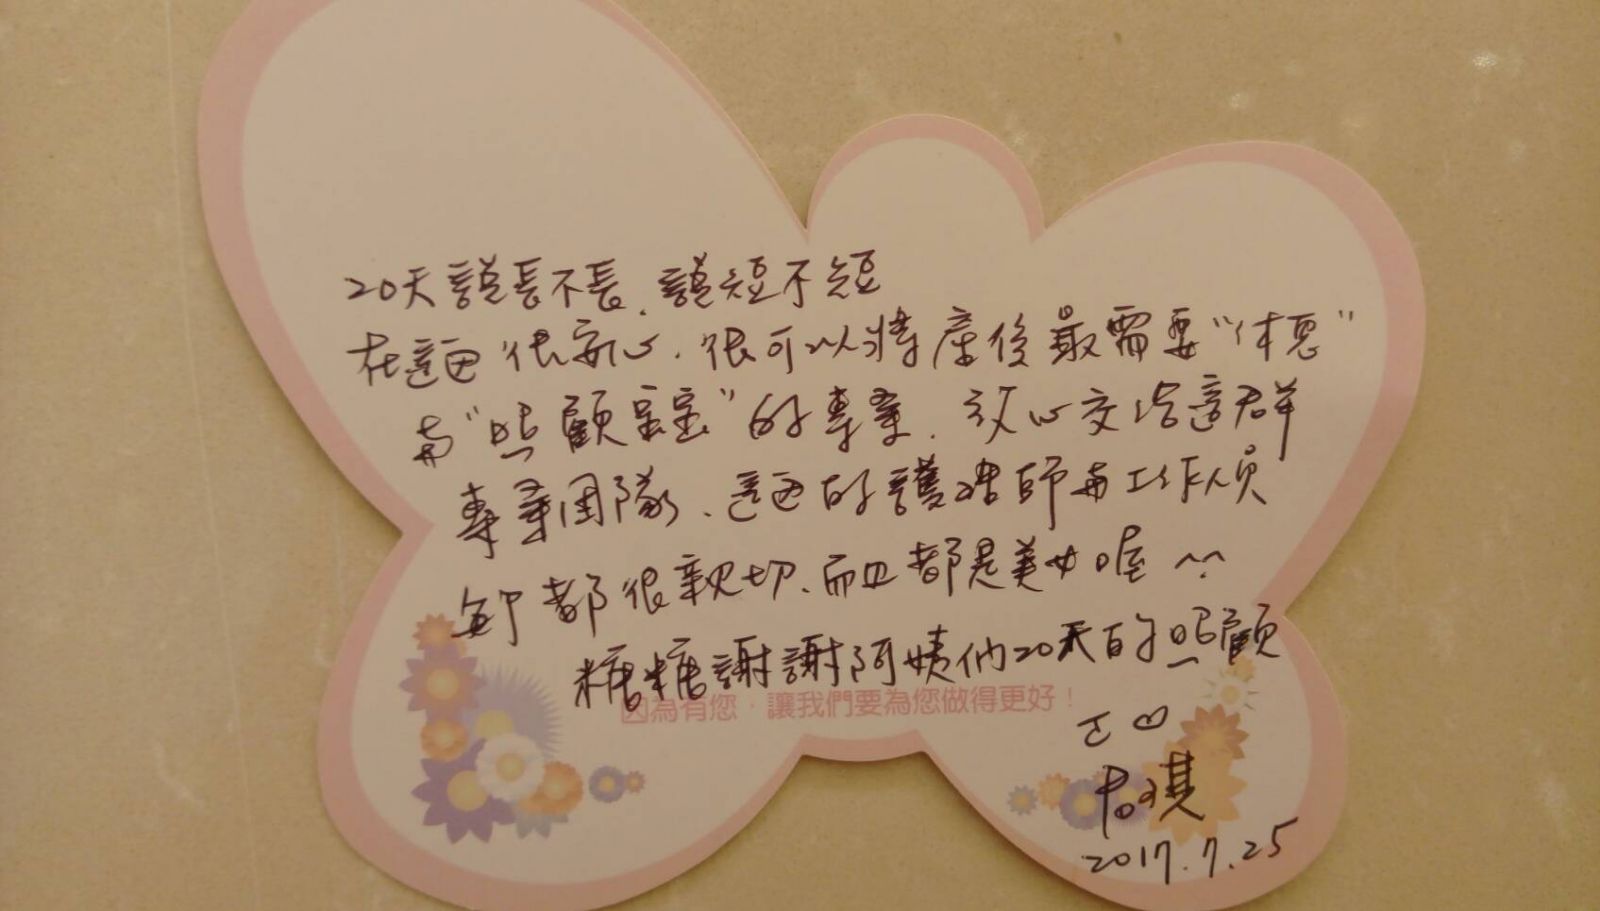 20天說長不長、說短不短
在這裡很安心、很可以將產後最需要"休息"
與"照顧寶寶"的專業、放心交給這群
專業團隊、這裡的護理師與工作人員
都很親切、而且都是美女喔^^
糖糖謝謝阿姨們20天的照顧
因為有您，讓我們要為您做得更好！
琪
2017.7.25